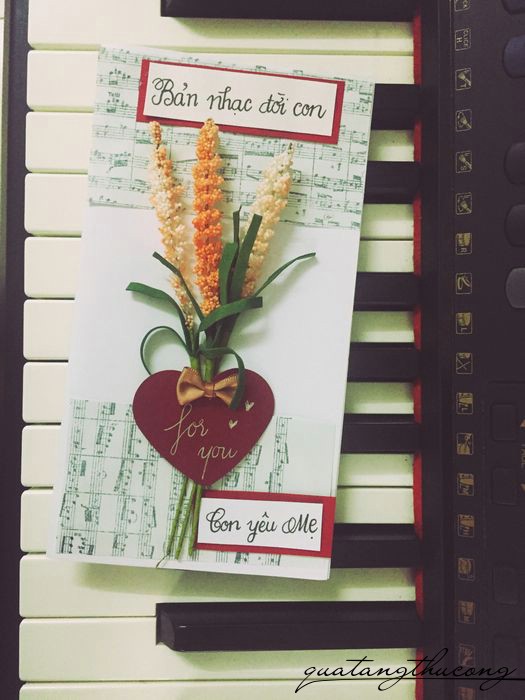 Bản nhạc đời con
for
you
Con yêu Mẹ
quatangthucong